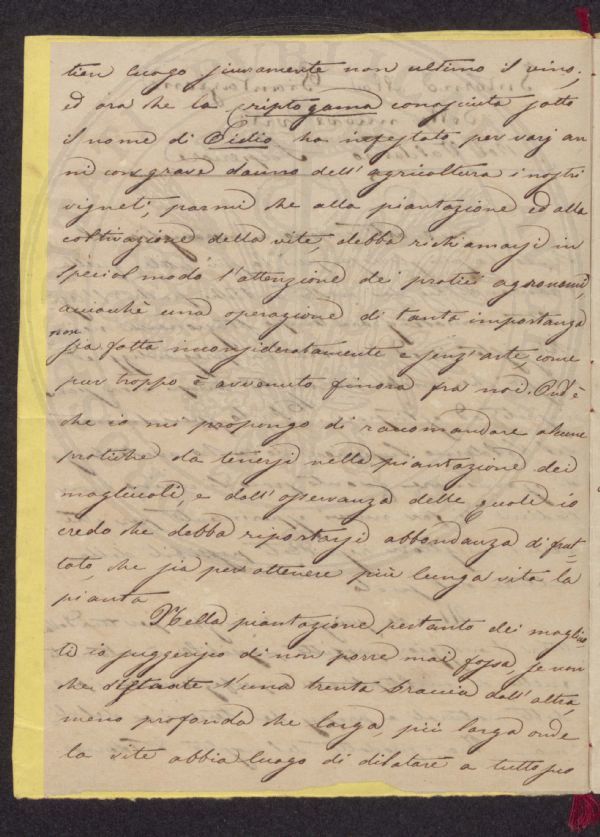 tien luogo sicuramente non ultimo il vino;
ed ora che la criptogama conosciuta sotto
il nome di Oidio ha infestato per varj an
ni con grave danno dell'agricoltura i nostri
vigneti, parmi che alla piantazione ed alla
coltivazione della vite, debba richiamarsi in
special modo l'attenzione dei pratici agronomi,
acciocchè una operazione di tanta importanza
non
sia fatta inconsideratamente e senz'arte, come
pur troppo è avvenuto finora fra noi. Ond'è
che io mi propongo di raccomandare alcune
pratiche da tenersi nella piantazione dei
magliuoli, e dall'osservanza delle quali io
credo che debba riportarsi abbondanza di frut=
tato, che sia per ottenere più lunga vita la
pianta
Nella piantazione pertanto dei magliuo
li io suggerisco di non porre mai fossa se non
che distante l'una trenta braccia dall'altra,
meno profonda che larga, più larga onde
la vite abbia luogo di dilatare a tutto suo